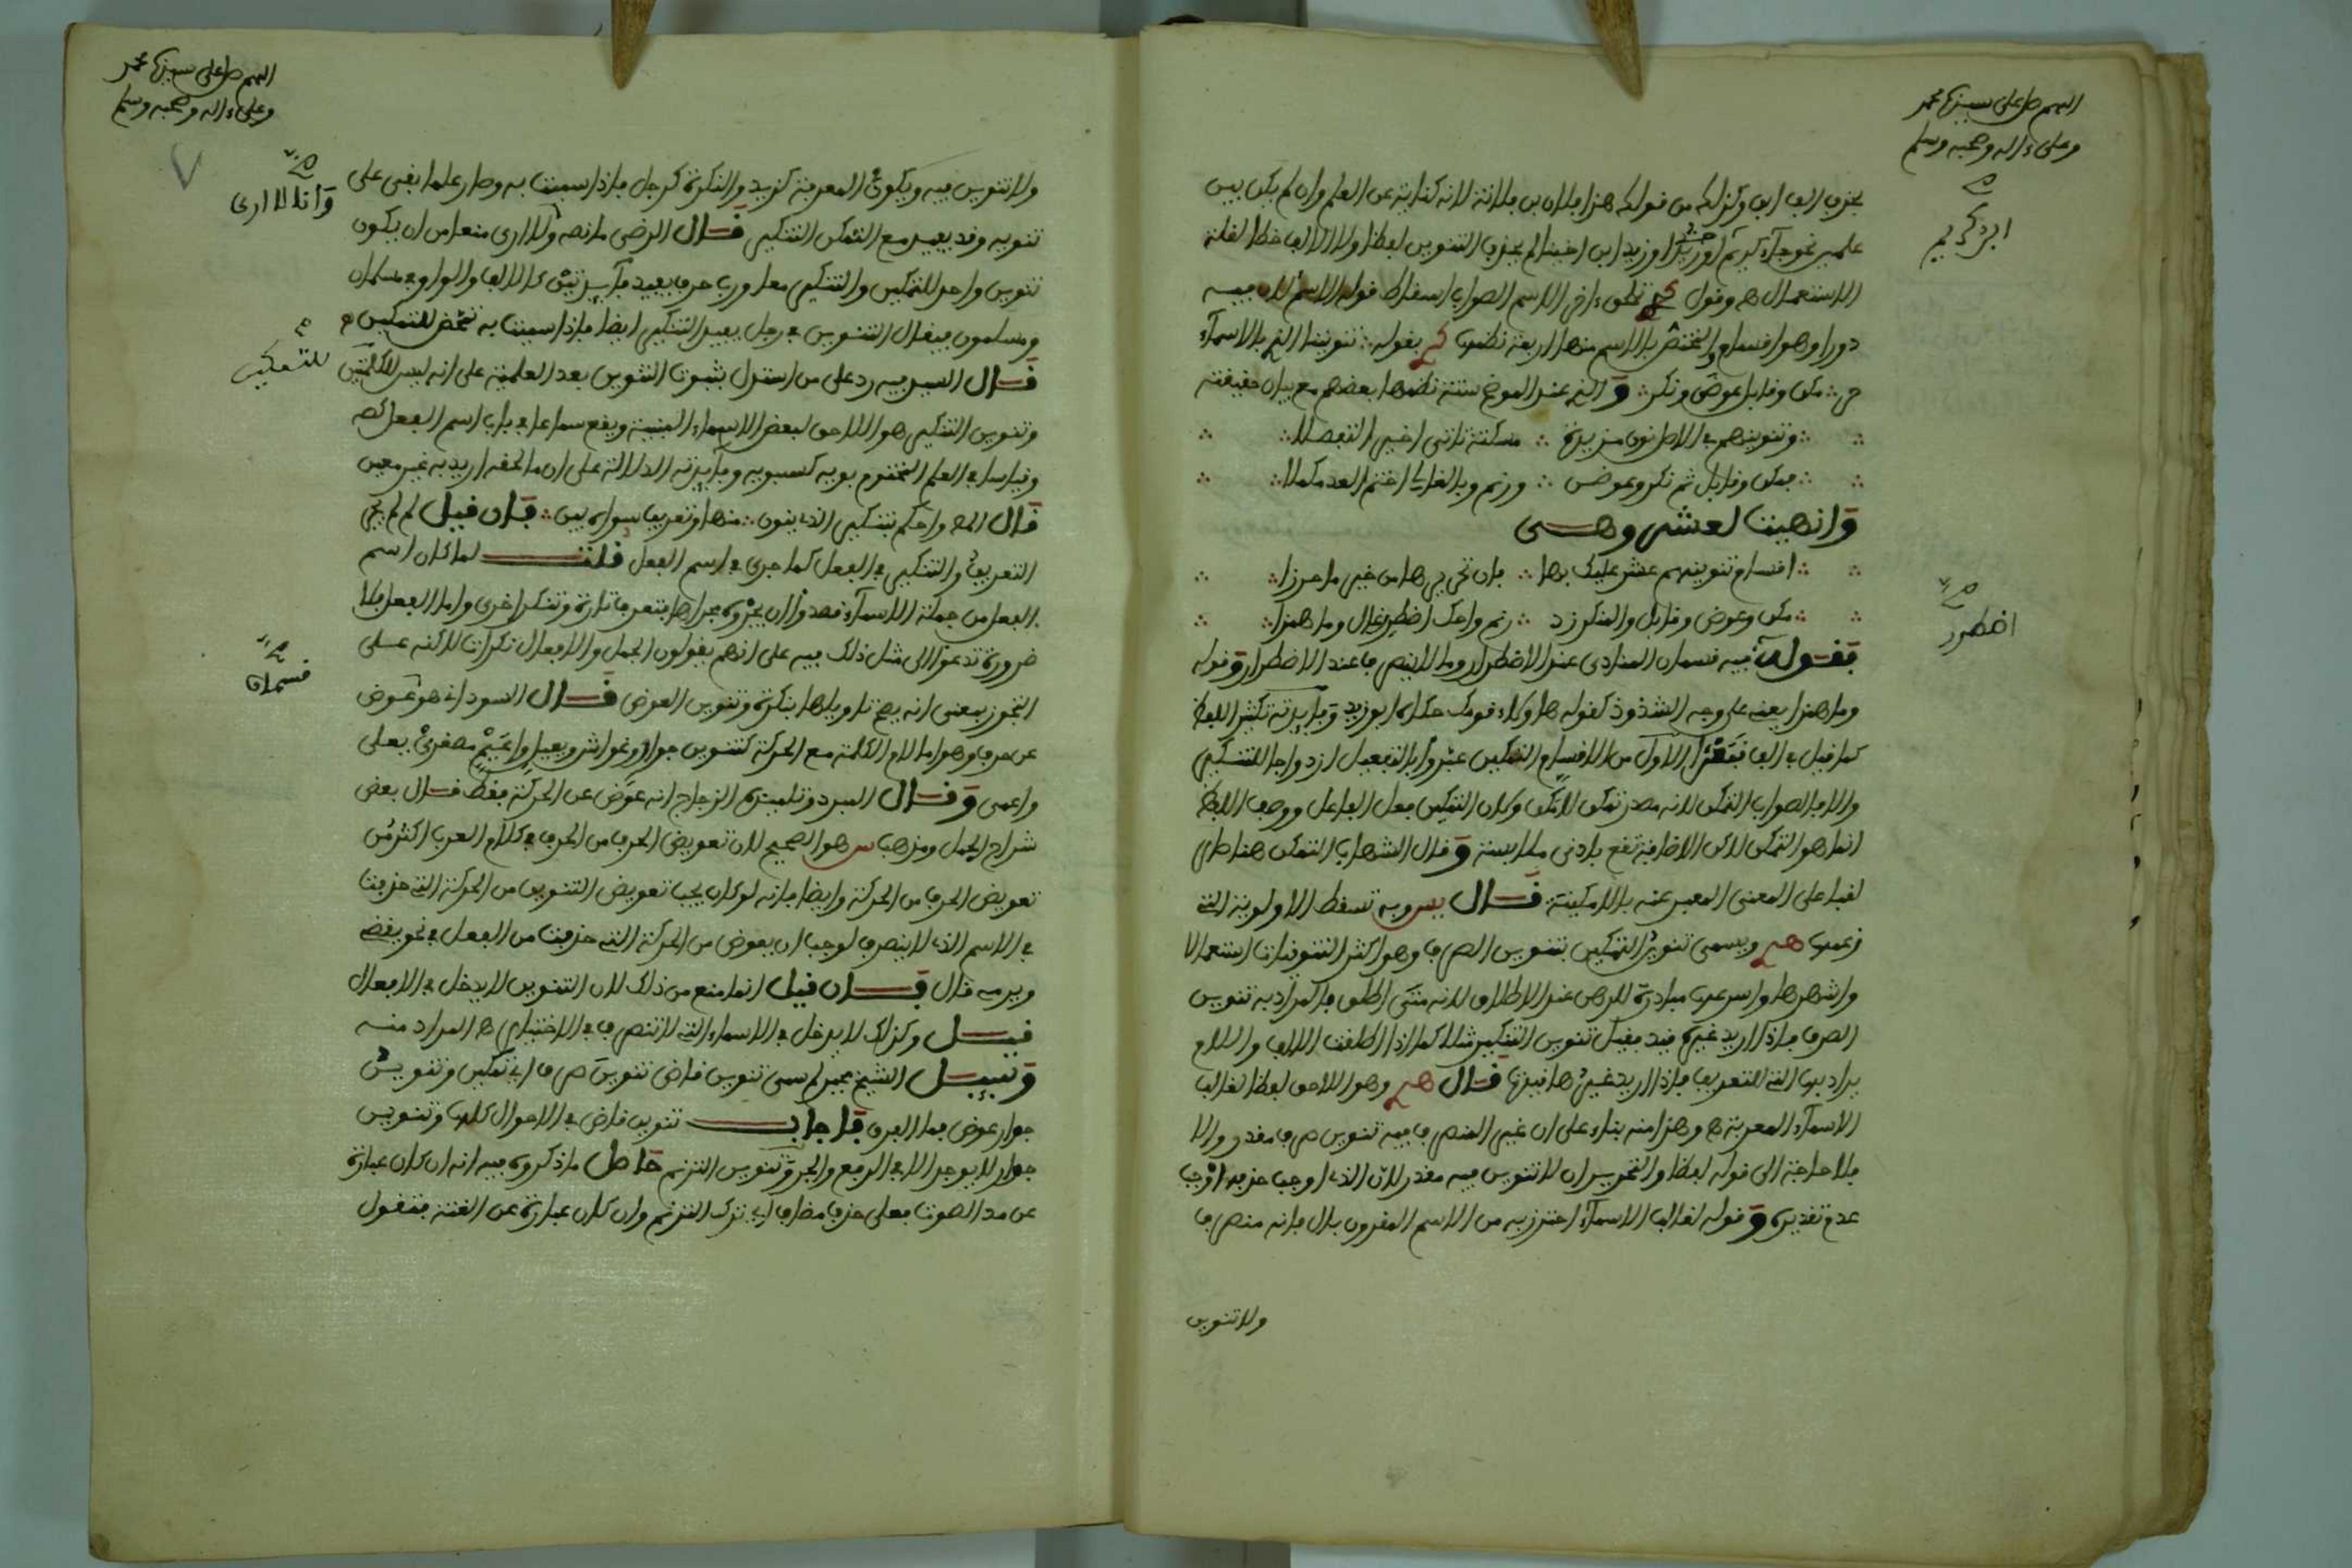 اللهم صل على سيدنا محمد
وعلى ءاله وصحبه وسلم
صح
ابن كريم
بحذف الف ابن وكذلك من قولك هذا فلان بن فلانة لانه كناية عن العلم وان لم يكن بين
علمين نحو جاء كريم او زيد ابن اخينا لم يحذف التنوين لفظا ولا الالف خطا لقلة
الاستعمال هـ وقول تلحق ءاخر الاسم الصواب اسقاط قوله الاسم لان فيه
دورا وهو اقسام والمختص بالاسم منها اربعة نظمها بقوله ∴ تنويننا الذي بالاسماء
∴ مكن وقابل عوض ونكر ∴ والذي عند الموضح ستة نظمها بعضهم مع بيان حقيقته
∴ وتنوينهم في الاصل نون مزيدة ∴
∴ فمكن وقابل ثم نكر وعوض ∴ ورنم وبالغالي اختتم العد مكملا ∴
وانهيت لعشر وهـي
∴ اقسام تنوينهم عشر عليك بها ∴ فان تحريرها من خير ما حرزا ∴
∴ مكن وعوض وقابل والمنكر زد ∴ رنم واحك اضطرر غال وما همزا ∴
صح
اضطرر
فقوله فيه قسمان المنادى عند الاضطرار وما لا ينصرف عند الاضطرار وقوله
وما همزا يعني على وجه الشذوذ كقوله هؤلاء قومك حكاه ابو زيد وفايدته تكثير اللفظ
كما قيل في الف قبعثرا الاول من الاقسام التمكين عبروا بالتفعيل ازدواجا للتنكير
والا فالصواب التمكن لانه مصدر تمكن لا مكن وكان التمكين فعل الفاعل ووصف اللفظ
انما هو التمكن لاكن الاضافة تقع بادنى ملابسة وقال الشهاب التمكن هنا صار
لقبا على المعنى المعبر عنه بالامكنية قال يس وبه تسقط الاولوية التي
زعمها ويسمى تنوين التمكين تنوين الصرف وهو اكثر التنوينات استعمالا
واشهرها واسرعها مبادرة للذهن عند الاطلاق لانه متى اطلق فالمراد به تنوين
الصرف فاذا اريد غيره قيد فقيل تنوين التنكير مثلا كما اذا اطلقت الالف واللام
يراد بها التي للتعريف فاذا اريد غيرها قيدها قال وهو اللاحق لفظا لغالب
الاسماء المعربة هـ وهذا منه بناء على ان غير المنصرف فيه تنوين صرف مقدر والا
فلا حاجة الى قوله لفظا والتحرير ان لا تنوين فيه مقدر لان الذي اوجب حذفه اوجب
عدم تقديره وقوله لغالب الاسماء احترز به من الاسم المقرون بال فانه منصرف
ولا تنوين
اللهم صل على سيدنا محمد
وعلى ءاله وصحبه وسلم
صح
وانا لا ارى
ولا تنوين فيه ويكون المعرفة كزيد والنكرة كرجل فاذا سميت به وصار علما بقي على
تنوينه وقد يفيد مع التمكن التنكير قال الرضي ما نصه ولا ارى منعا من ان يكون
تنوين واحد للتمكين والتنكير معا ورب حرف يفيد فائدتين كالالف والواو في مسلمان
ومسلمون فيقال التنوين في رجل يفيد التنكير ايضا فاذا سميت به تمحض للتمكين هـ
للتمكين
قال السيد فيه رد على من استدل بثبوت التنوين بعد العلمية على انه ليس للتمكين
وتنوين التنكير هو اللاحق لبعض الاسماء المبنية ويقع سماعا في باب اسم الفعل كصه
وقياسا في العلم المختوم بويه كسيبويه وفايدته الدلالة على ان ما لحقه اريد به غير معين
قال واحكم بتنكير الذي ينون ∴ منها وتعريف سواه بين ∴ فان قيل لم لم يجر
التعريف والتنكير في الفعل كما جرى في اسم الفعل قلت لما كان اسم
الفعل من جملة الاسماء قصدوا ان يجروه مجراها فتعرف تارة وتنكر اخرى واما الفعل فلا
ضرورة تدعوا الى مثل ذلك فيه على انهم يقولون الجمل والافعال نكرات لاكنه على
صح
قسمان
التجوز بمعنى انه يصح تاويلها بنكرة وتنوين العوض قال السوداني هو عوض
عن حرف وهو اما لام الكلمة مع الحركة كتنوين جوار وغواش ويعيل واعيم مصغري يعلى
واعمى وقال المبرد وتلميذه الزجاج انه عوض عن الحركة فقط قال بعض
شراح الجمل ومذهب س هو الصحيح لان تعويض الحرف من الحرف في كلام العرب اكثر من
تعويض الحرف من الحركة وايضا فانه لو كان يجب تعويض التنوين من الحركة التي حذفت
في الاسم الذي لا ينصرف لوجب ان يعوض من الحركة التي حذفت من الفعل في نحو يقضي
ويرميه قال فان قيل انما منع من ذلك لان التنوين لا يدخل في الافعال
قيل وكذلك لا يدخل في الاسماء التي لا تنصرف في الاختيار هـ المراد منه
وسيل الشيخ لم سمي تنوين قاض تنوين صرف اي تمكين وتنوين
جوار عوض فما الفرق فاجاب تنوين قاض في الاحوال كلها وتنوين
جوار لا يوجد الا في الرفع والجر وتنوين الترنم حاصل ما ذكروه فيه انه ان كان عبارة
عن مد الصوت فعلى حذف مضاف اي ترك الترنم وان كان عبارة عن الغنة فتقول